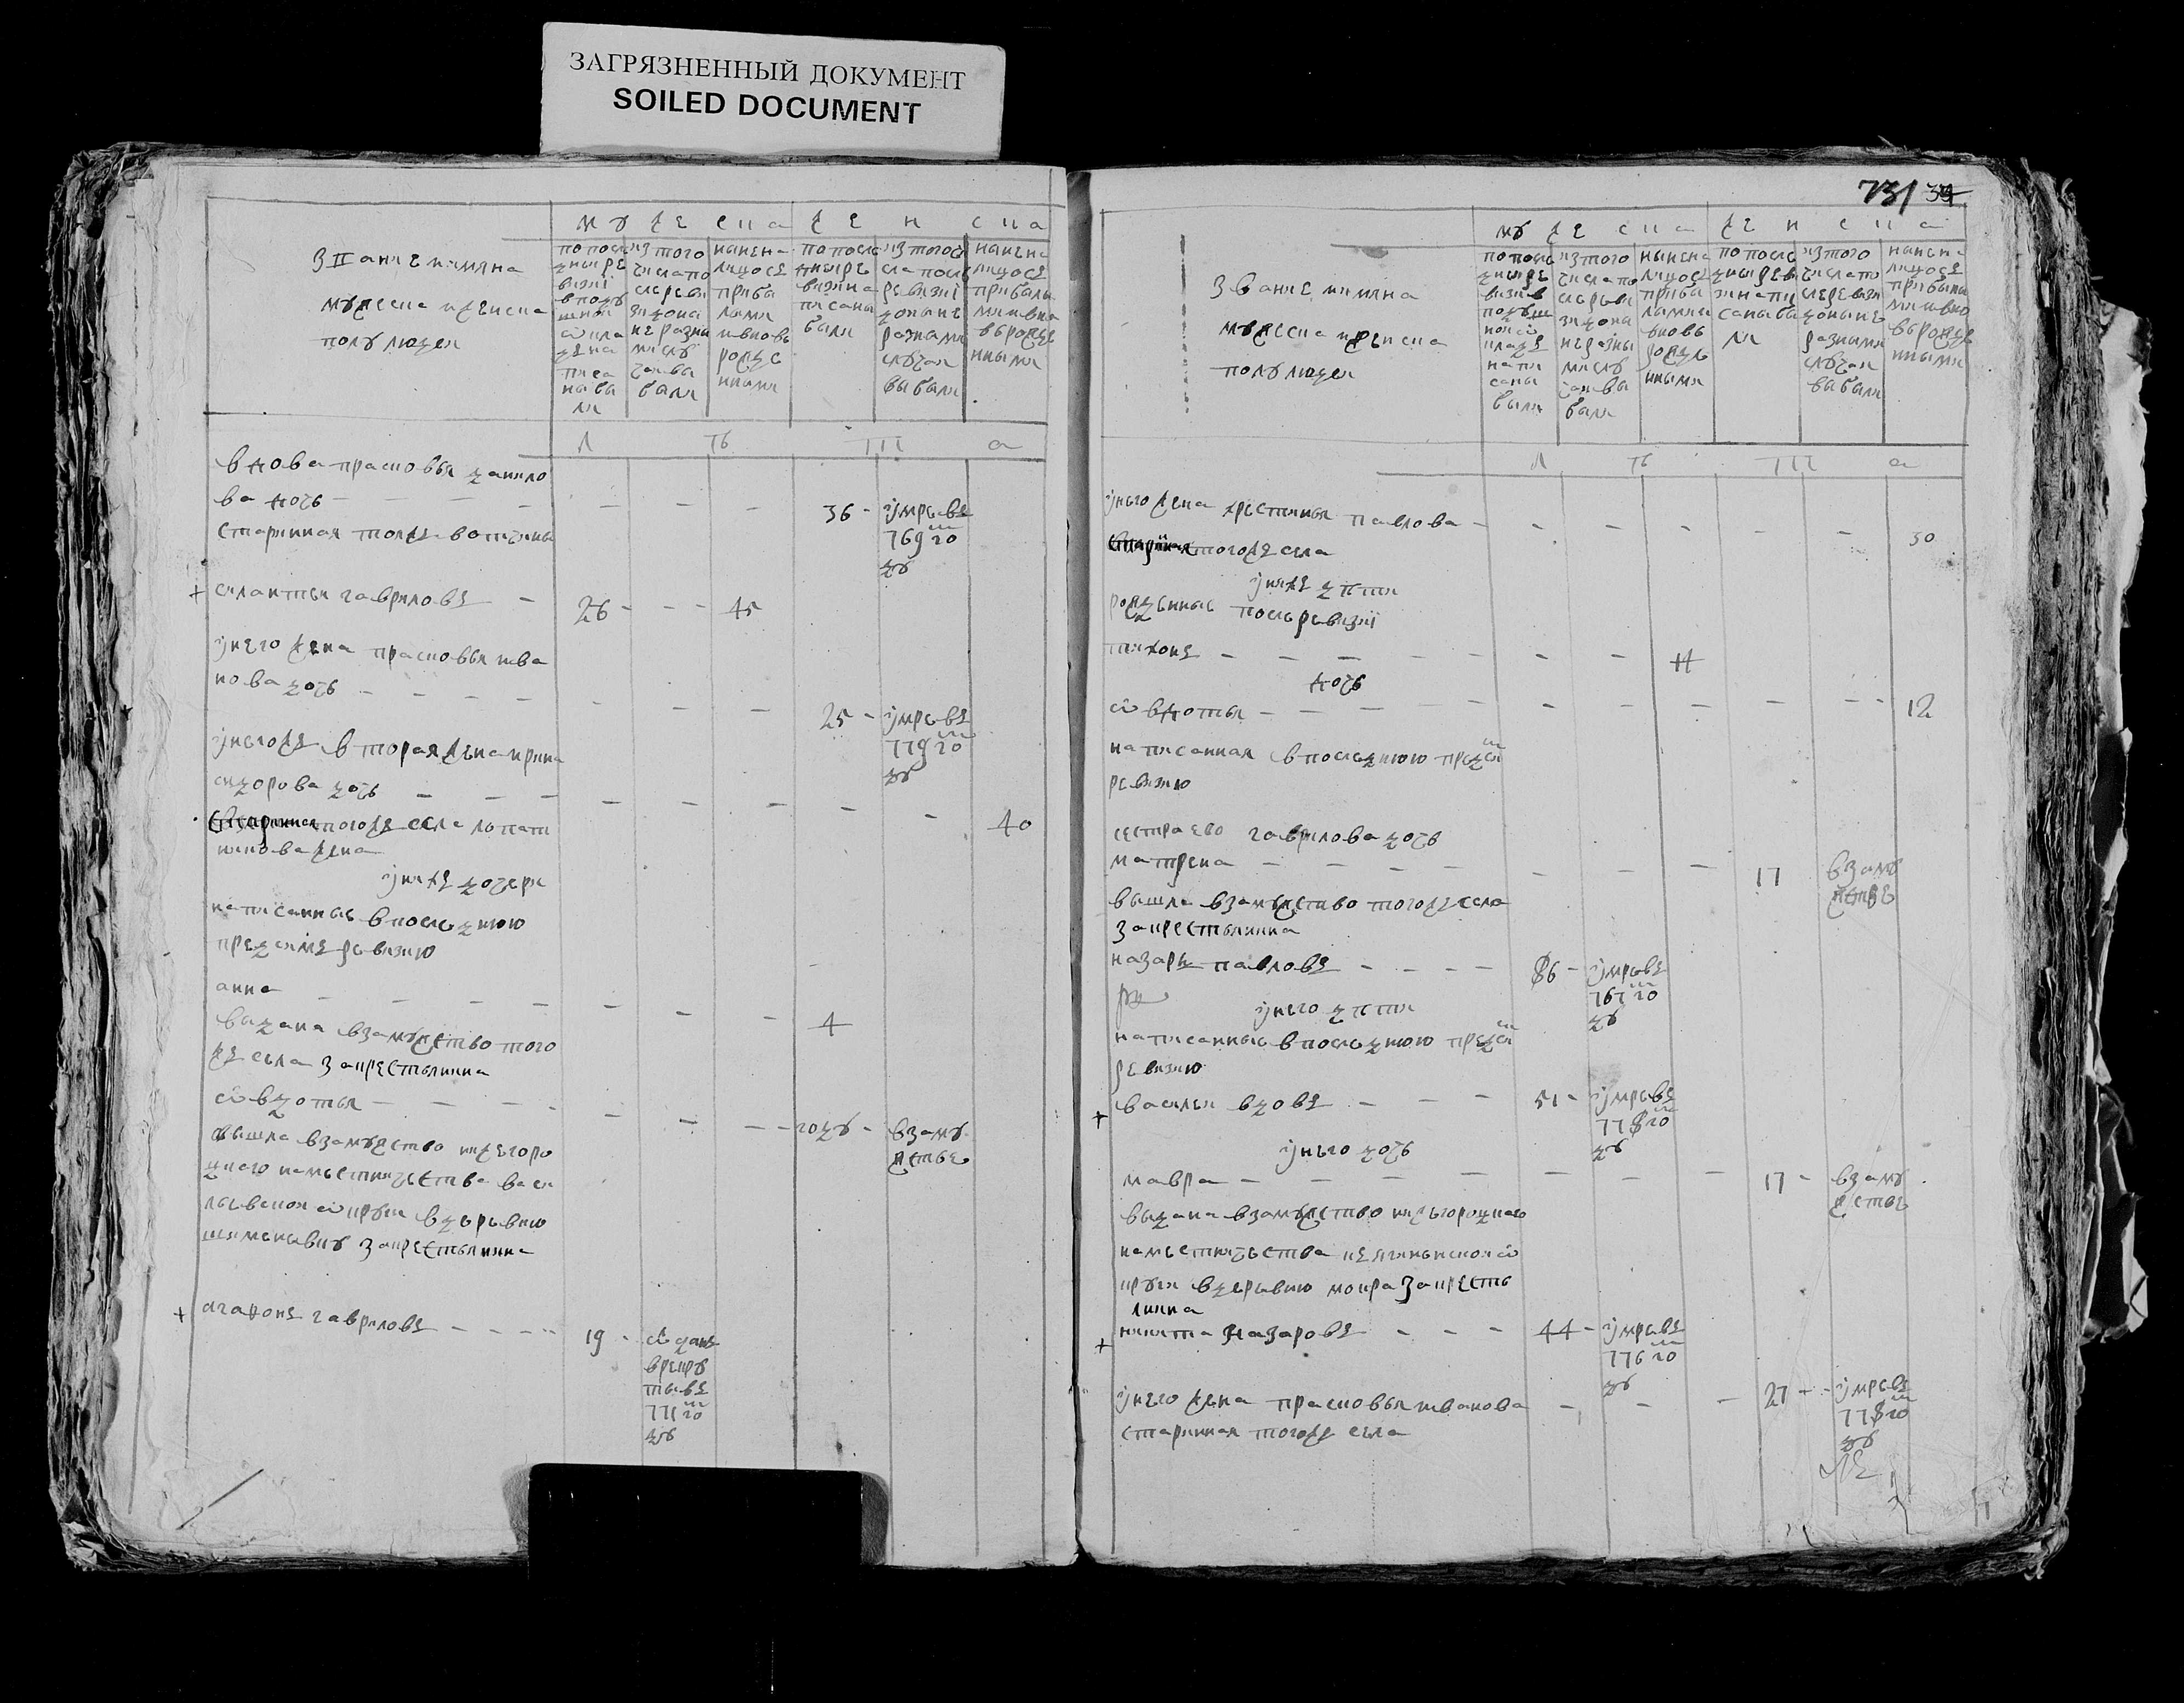 ЗАГРЯЗНЕННЫЙ ДОКУМЕНТ
SOILED DOCUMENT
му же ска
же н ска
звание и имяна
мужеска и женска
полу людеи
по после
дней ре
визіи
в поду
шной
окла
де на
писа
ны бы
ли
из того
числа по
сле реви
зи до ны
не разны
ми слу
чаи вы
были
ныне на
лицо съ
прибы
лыми
и вновь
рожде
нными
по после
дней ре
визии на
писаны
были
из того чи
сла после
ревизіи
до ныне
разными
случаи
выбыли
ныне на
лицо съ
прибылы
ми и вно
вь рожде
нными
л ть та
вдова прасковья данило
ва дочь
36
умре въ
769 го
ду
старинная тойже вотчины
силантеи гавриловъ
26
45
у него жена прасковья ива
нова дочь
25
умре въ
779 го
ду
у негоже вторая жена ирина
сидорова дочь
40
тогожъ села
жена
у нихъ дочери
написанные в последнюю
пред симъ ревизию
анна
4
выдана взамужство того
жъ села за крестьянина
авдотья
году
взаму
жстве
вышла взамужство нижегоро
дцкого наместничества васи
льевской округи в деревню
за крестьянина
агафонъ гавриловъ
19
отданъ
в рекру
ты въ
771 го
ду
731
му же ска
же н ска
звание и имяна
мужеска и женска
полу людеи
по после
дней ре
визіи в
подуш
ной о
кладе
напи
саны
были
из того
числа по
сле реви
зи до ны
не разны
ми слу
чаи вы
были
ныне на
лицо съ
прибы
лыми и
вновь
рожде
нными
по после
дней реви
зи напи
саны бы
ли
из того
числа по
сле ревизи
до ныне
разными
случаи
выбыли
ныне на
лицо съ
прибылы
ми и вно
вь рожде
нными
л ть та
у него жена крестинья павлова
30
старинная тогожъ села
у нихъ дети
рожденные после ревизіи
тихонъ
14
дочь
авдотья
12
написанная в последнюю пред сим
ревизию
сестра ево гаврилова дочь
матрена
17
взаму
жстве
вышла взамужство тогожъ села
за крестьянина
назаръ павловъ
86
умре въ
767 го
ду
у него дети
написанные в последнюю пред сим
ревизию
василеи вдовъ
51
умре въ
778 го
ду
у него дочь
мавра
17
взаму
жстве
выдана взамужство нижегородцкого
наместничества княгининской о
круги в деревню мокра за кресть
янина
никита назаровъ
44
умре въ
776 го
ду
у него жена прасковья иванова
27
умре въ
778 го
ду
старинная тогожъ села